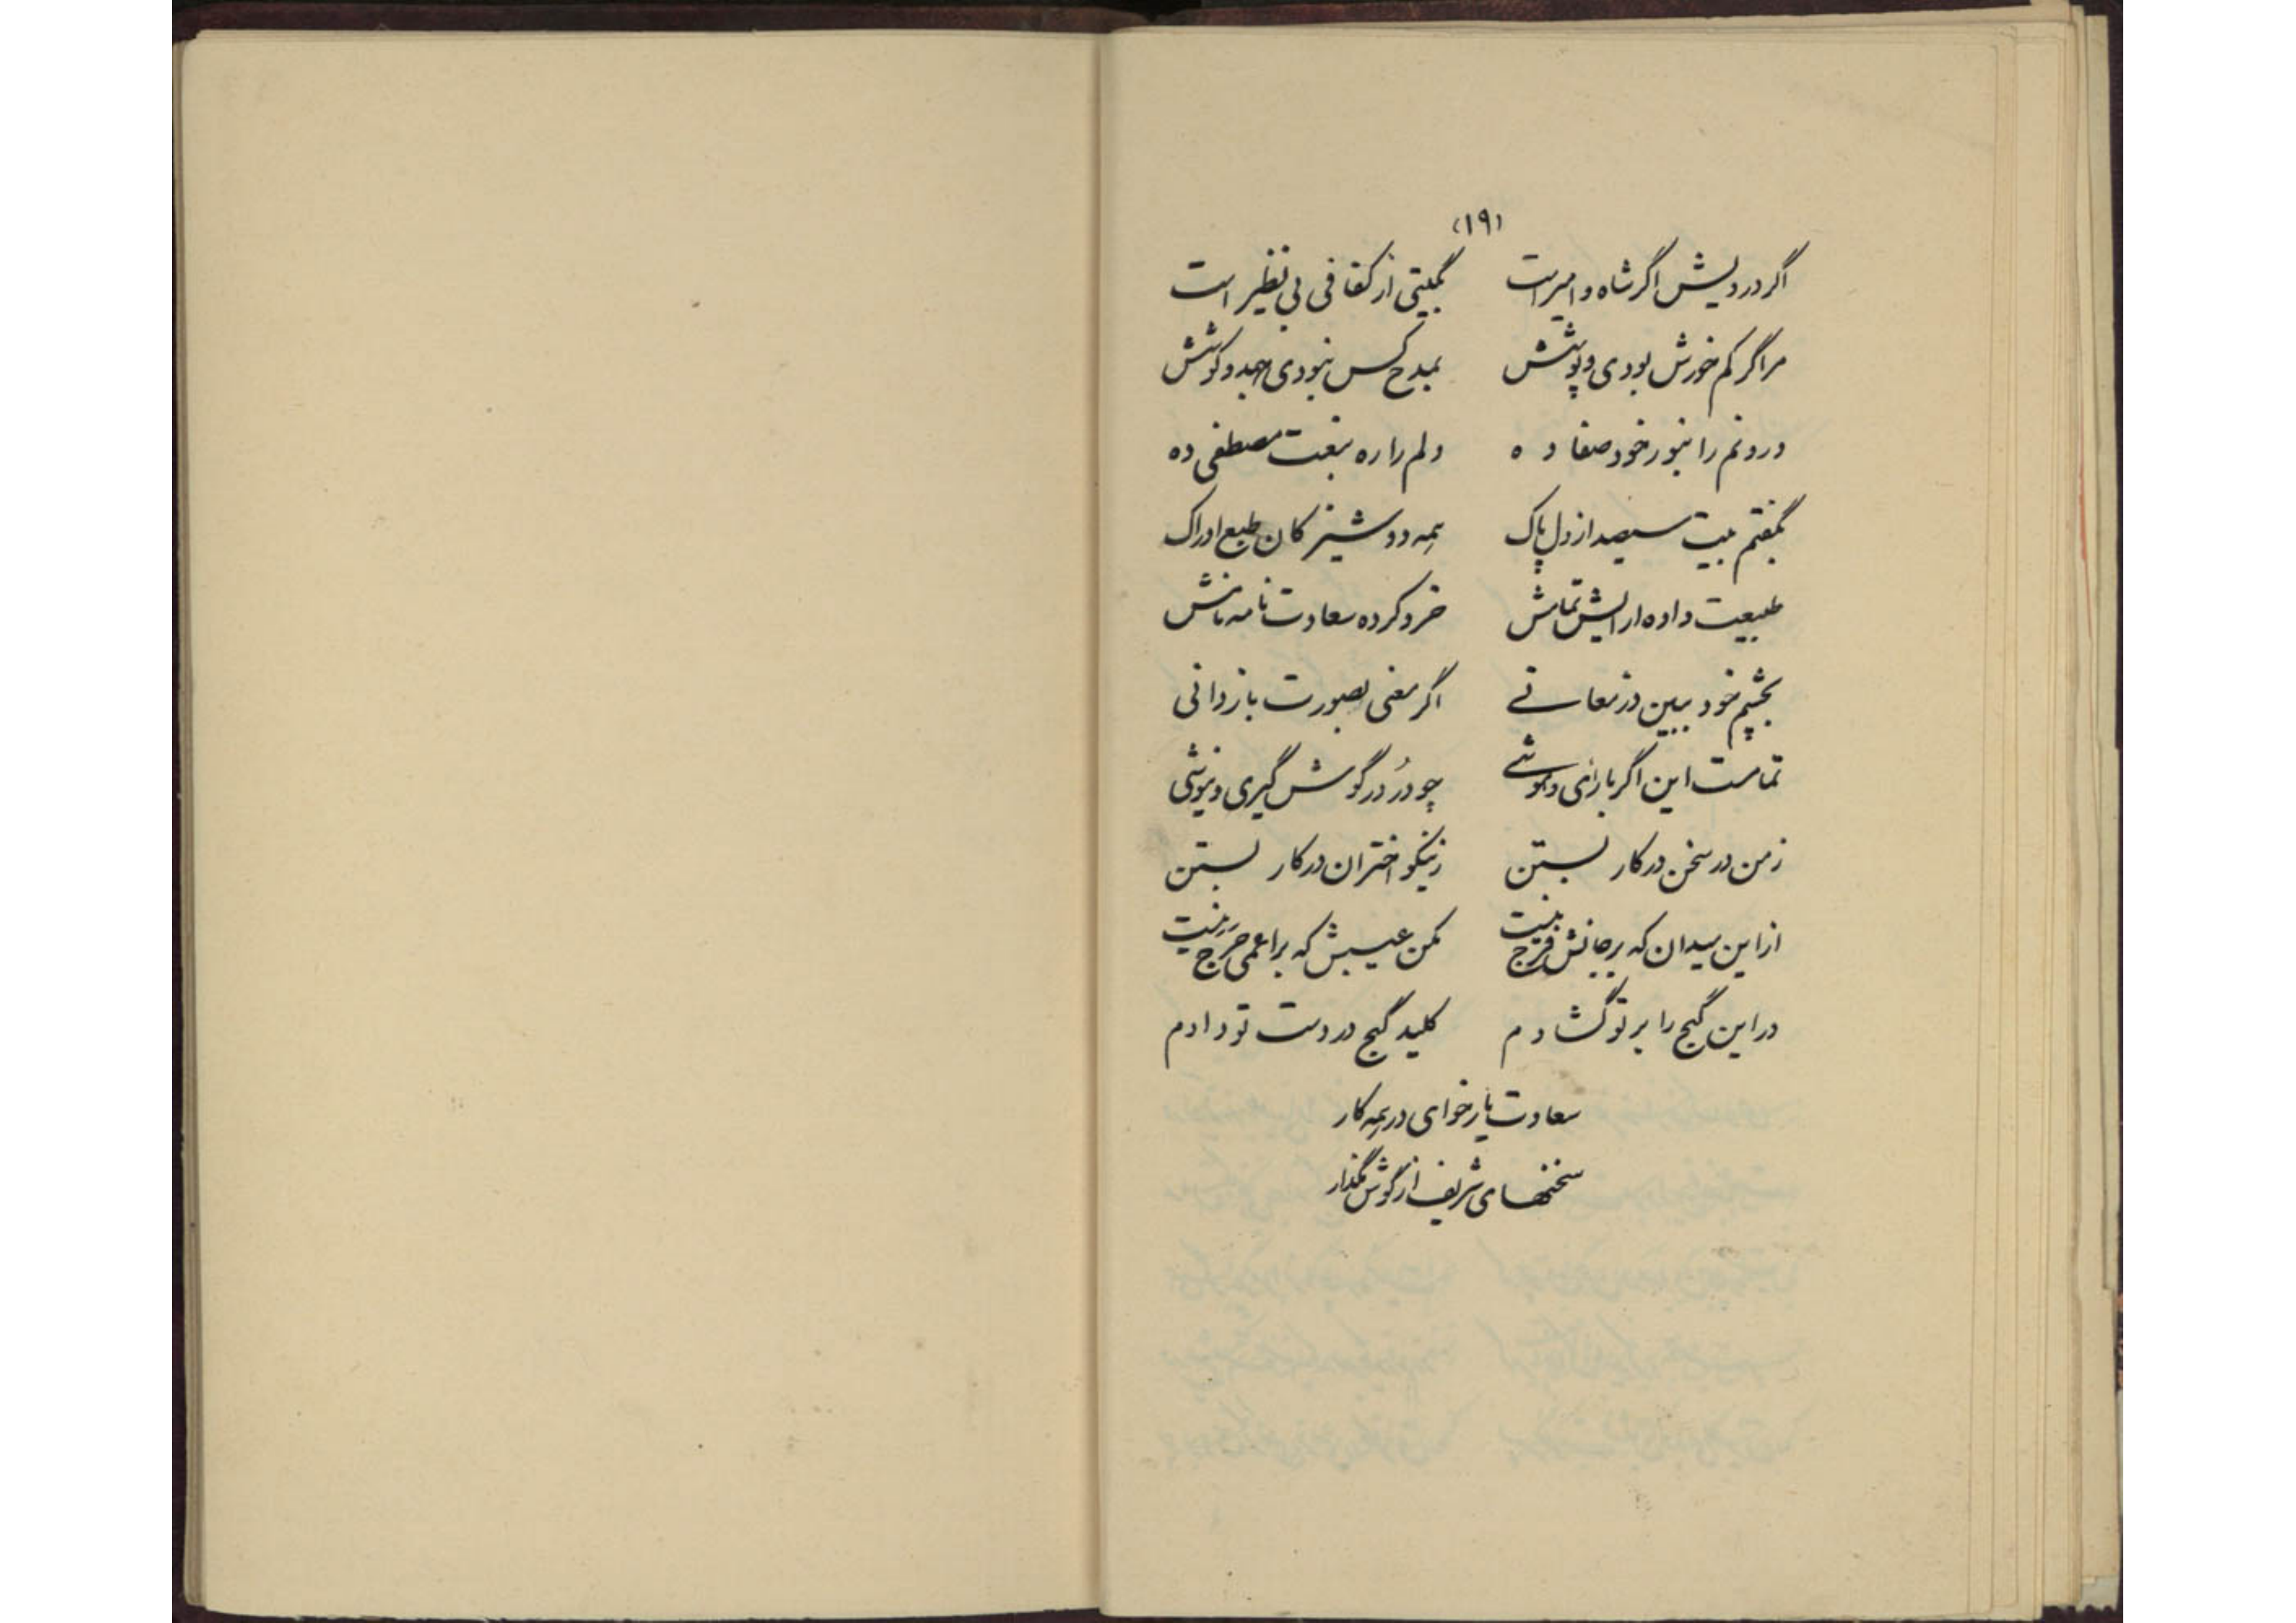 (۱۹)
اگر درویش اگر شاه و امیر است بگیتی از کفافی بی نظیر است
مرا گر کم خورش بودی و پوشش بمدح کس نبودی جهد و کوشش
درونم را بنور خود صفا ده دلم را ره بنعت مصطفی ده
بگفتم بیت سیصد از دل پاک همه دوشیزگان طبع ادراک
طبیعت داده ارایش تماش خرد کرده سعادت نامه نامش
بچشم خود ببین در معانی اگر معنی بصورت باز دانی
تمامست این اگر بارای و هوشی چو دُر در گوش گیری و نیوشی
ز من در سخن در کار بستن ز نیکو اختران در کار بستن
از این میدان که بر جانش فرج نیست مکن عیبش که بر اعمی حَرَج نیست
در این گنج را بر تو گشادم کلید گنج در دست تو دادم
سعادت یار خوای در همه کار
سخنهای شریف از گوش مگذار